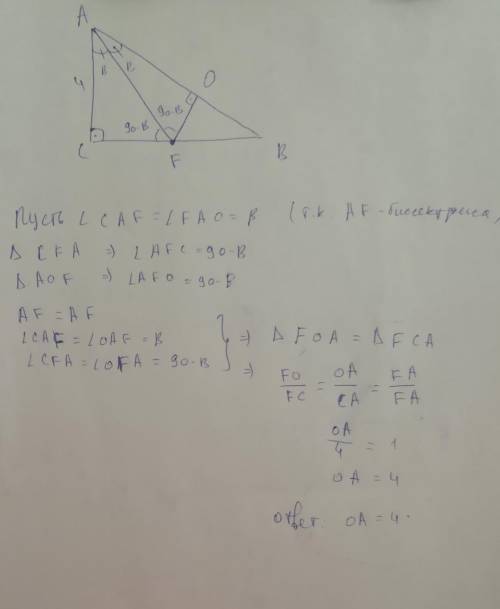 A
B B
4
O
90-B
90-B
C
F
B
Пусть ∠CAF = ∠FAO = B (т.к. AF - биссектриса,
Δ CFA ⇒ ∠AFC = 90-B
Δ AOF ⇒ ∠AFO = 90-B
AF = AF
∠CAF = ∠OAF = B
∠CFA = ∠OFA = 90-B
⇒ Δ FOA = Δ FCA
⇒ FO/FC = OA/CA = FA/FA
OA/4 = 1
OA = 4
Ответ: OA = 4.